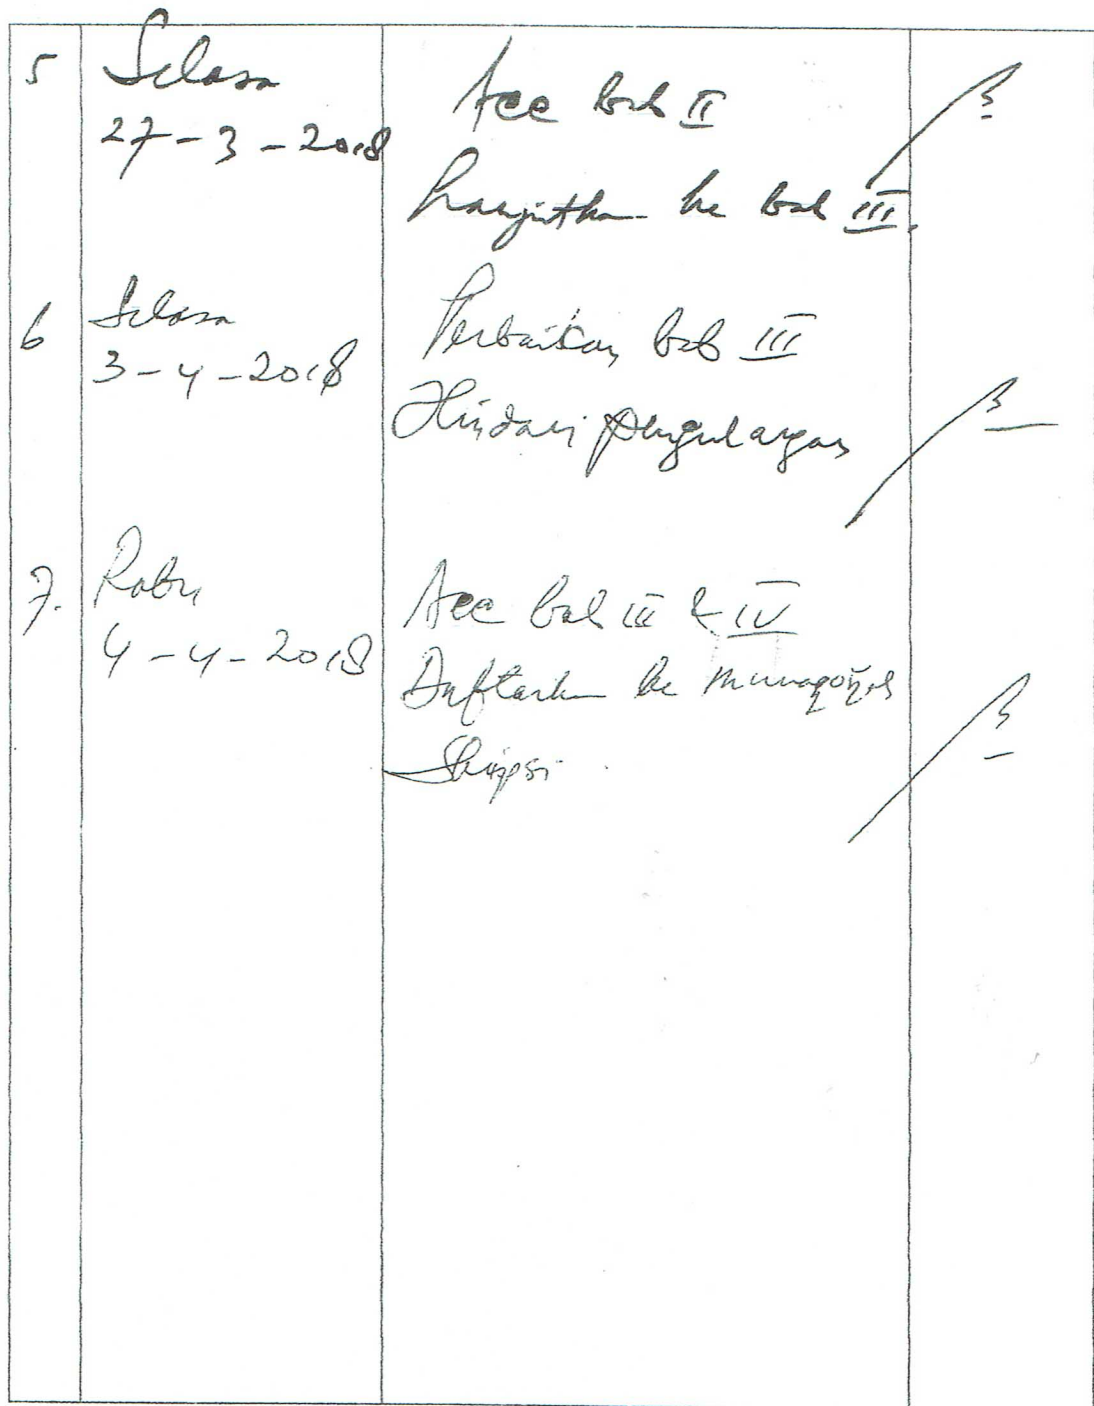 5 Selasa
27-3-2018
Acc bab II
Lanjutkan ke bab III.
6 Selasa
3-4-2018
Perbaikan bab III
Hindari pengulangan
7. Rabu
4-4-2018
Acc bab III & IV
Daftarkan ke munaqosyah
Skripsi